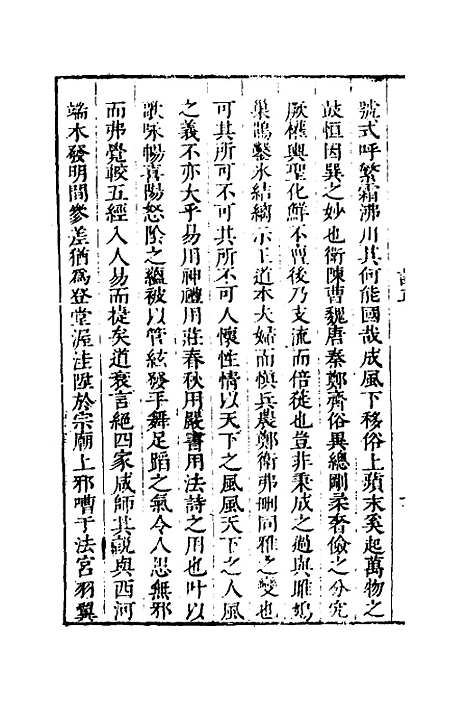 號式呼繁霜沸川其何能國哉成風下移俗上蘋末奚起萬物之
鼓恒因巽之妙也衛陳曹魏唐秦鄭齊俗異總剛柔奢儉之分究
厥樵輿聖化鮮不曹後乃支流而倍徙也豈非秉成之過與雎鳩
巢鵲鑿氷結縭示王道本夫婦而慎兵農鄭衛弗刪同雅之變也
可其所可不可其所不可人懷性情以天下之風風天下之人風
之義不亦大乎易用神禮用莊春秋用嚴書用法詩之用也叶以
歌咏暢喜陽怒陰之蘊被以管絃發手舞足蹈之氣令人思無邪
而弗覺較五經入人易而捷矣道衰言絕四家咸師其說與西河
端木發明間參差猶為登堂渥洼陞於宗廟上邪嘈于法宮羽翼